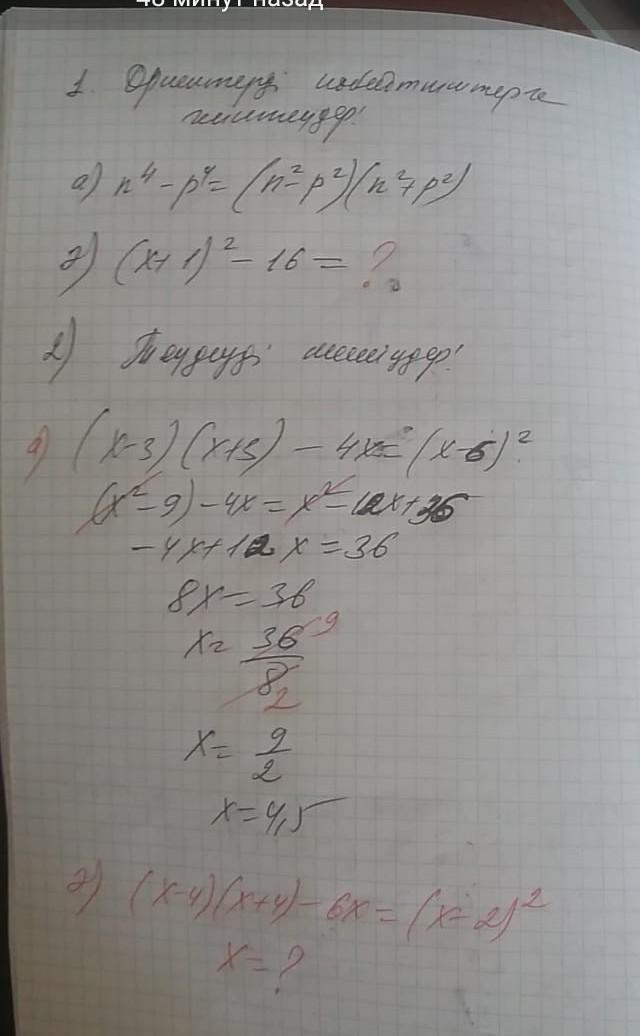 48 минут назад
1. Өрнектерді көбейткіштерге жіктеңдер!
а) n⁴ - p⁴ = (n² - p²)(n² + p²)
ә) (x+1)² - 16 = ?
2) Теңдеуді шешіңдер!
а) (x-3)(x+3) - 4x = (x-6)²
(x² - 9) - 4x = x² - 12x + 36
-4x + 12x = 36
8x = 36
x = 36/8 9 2
x = 9/2
x = 4,5
ә) (x-4)(x+4) - 6x = (x-2)²
x = ?